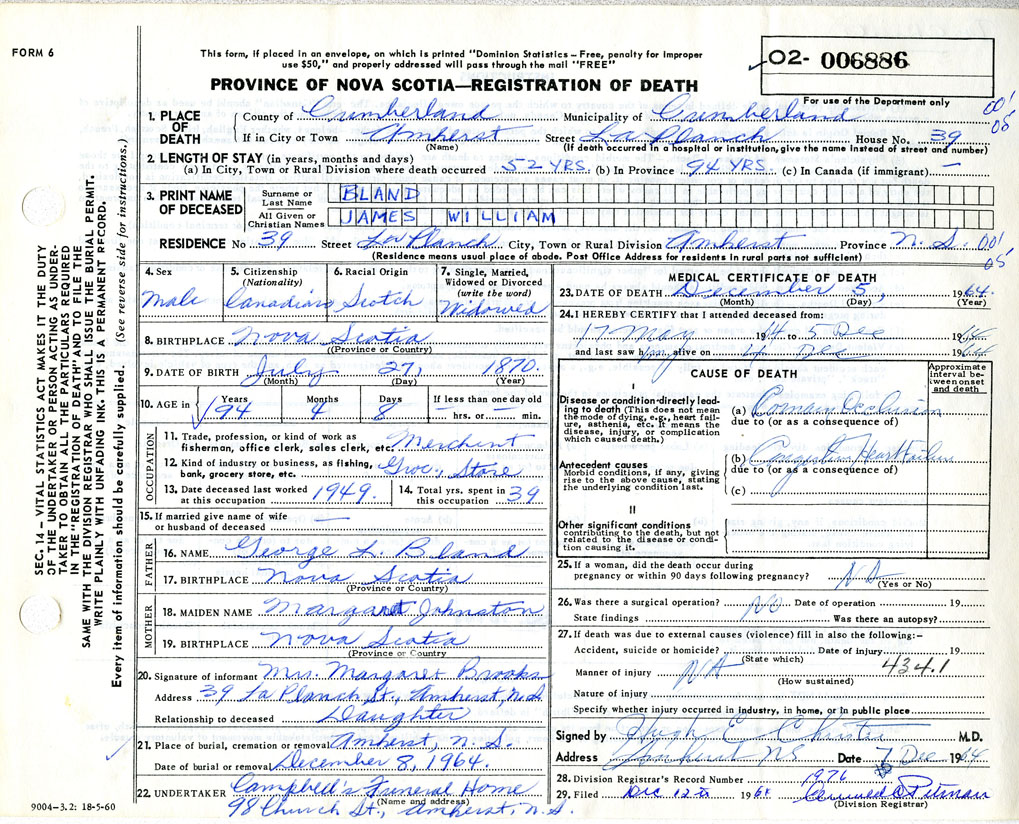 FORM 6
This form, if placed in an envelope, on which is printed "Dominion Statistics – Free, penalty for improper
use $50," and properly addressed will pass through the mail "FREE"
O2- 006886
PROVINCE OF NOVA SCOTIA—REGISTRATION OF DEATH
For use of the Department only
1. PLACE OF DEATH
County of Cumberland Municipality of Cumberland
001
05
If in City or Town Amherst Street La Planch House No. 39
(Name) (If death occurred in a hospital or institution, give the name instead of street and number)
2. LENGTH OF STAY (in years, months and days)
(a) In City, Town or Rural Division where death occurred 52 YRS. (b) In Province 94 YRS. (c) In Canada (if immigrant) —
3. PRINT NAME OF DECEASED
Surname or Last Name BLAND
All Given or Christian Names JAMES WILLIAM
RESIDENCE No 39 Street La Planch City, Town or Rural Division Amherst Province N.S. 001
05
(Residence means usual place of abode. Post Office Address for residents in rural parts not sufficient)
4. Sex Male
5. Citizenship (Nationality) Canadian
6. Racial Origin Scotch
7. Single, Married, Widowed or Divorced (write the word) Widowed
8. BIRTHPLACE Nova Scotia
(Province or Country)
9. DATE OF BIRTH July 27, 1870.
(Month) (Day) (Year)
10. AGE in Years 94 Months 4 Days 8 If less than one day old — hrs. or — min.
OCCUPATION
11. Trade, profession, or kind of work as
fisherman, office clerk, sales clerk, etc. Merchant
12. Kind of industry or business, as fishing,
bank, grocery store, etc. Groc. Store
13. Date deceased last worked at this occupation 1949.
14. Total yrs. spent in this occupation 39
15. If married give name of wife
or husband of deceased —
FATHER
16. NAME George L. Bland
17. BIRTHPLACE Nova Scotia
(Province or Country)
MOTHER
18. MAIDEN NAME Margaret Johnston
19. BIRTHPLACE Nova Scotia
(Province or Country)
20. Signature of informant Mrs. Margaret Brooks
Address 39 La Planch St., Amherst, N.S.
Relationship to deceased Daughter
21. Place of burial, cremation or removal Amherst, N.S.
Date of burial or removal December 8, 1964.
22. UNDERTAKER Campbell's Funeral Home
(Name and address)
98 Church St., Amherst, N.S.
MEDICAL CERTIFICATE OF DEATH
23. DATE OF DEATH December 5, 1964.
(Month) (Day) (Year)
24. I HEREBY CERTIFY that I attended deceased from:
17 May 1964 to 5 Dec 1964
and last saw him alive on 4 Dec 1964
CAUSE OF DEATH
Approximate interval between onset and death
I
Disease or condition directly leading
to death (This does not mean
the mode of dying, e.g., heart failure,
asthenia, etc. It means the
disease, injury, or complication
which caused death.)
(a) Coronary Occlusion
due to (or as a consequence of)
Antecedent causes
Morbid conditions, if any, giving
rise to the above cause, stating
the underlying condition last.
(b) Congestive Heart Failure
due to (or as a consequence of)
(c)
II
Other significant conditions
contributing to the death, but not
related to the disease or condition
causing it.
25. If a woman, did the death occur during
pregnancy or within 90 days following pregnancy?
(Yes or No)
26. Was there a surgical operation? No Date of operation 19
State findings Was there an autopsy?
27. If death was due to external causes (violence) fill in also the following:—
Accident, suicide or homicide? Date of injury 19
(State which)
Manner of injury NA 434.1
(How sustained)
Nature of injury
Specify whether injury occurred in industry, in home, or in public place
Signed by Hugh E. Christie M.D.
Address Amherst NS Date 7 Dec 1964
28. Division Registrar's Record Number 1976
29. Filed Dec 12th 1964
(Division Registrar)
SEC. 14 – VITAL STATISTICS ACT MAKES IT THE DUTY
OF THE UNDERTAKER OR PERSON ACTING AS UNDERTAKER
TO OBTAIN ALL THE PARTICULARS REQUIRED
IN THE "REGISTRATION OF DEATH" AND TO FILE THE
SAME WITH THE DIVISION REGISTRAR WHO SHALL ISSUE THE BURIAL PERMIT.
WRITE PLAINLY WITH UNFADING INK. THIS IS A PERMANENT RECORD.
Every item of information should be carefully supplied. (See reverse side for instructions.)
9004-3.2: 18-5-60